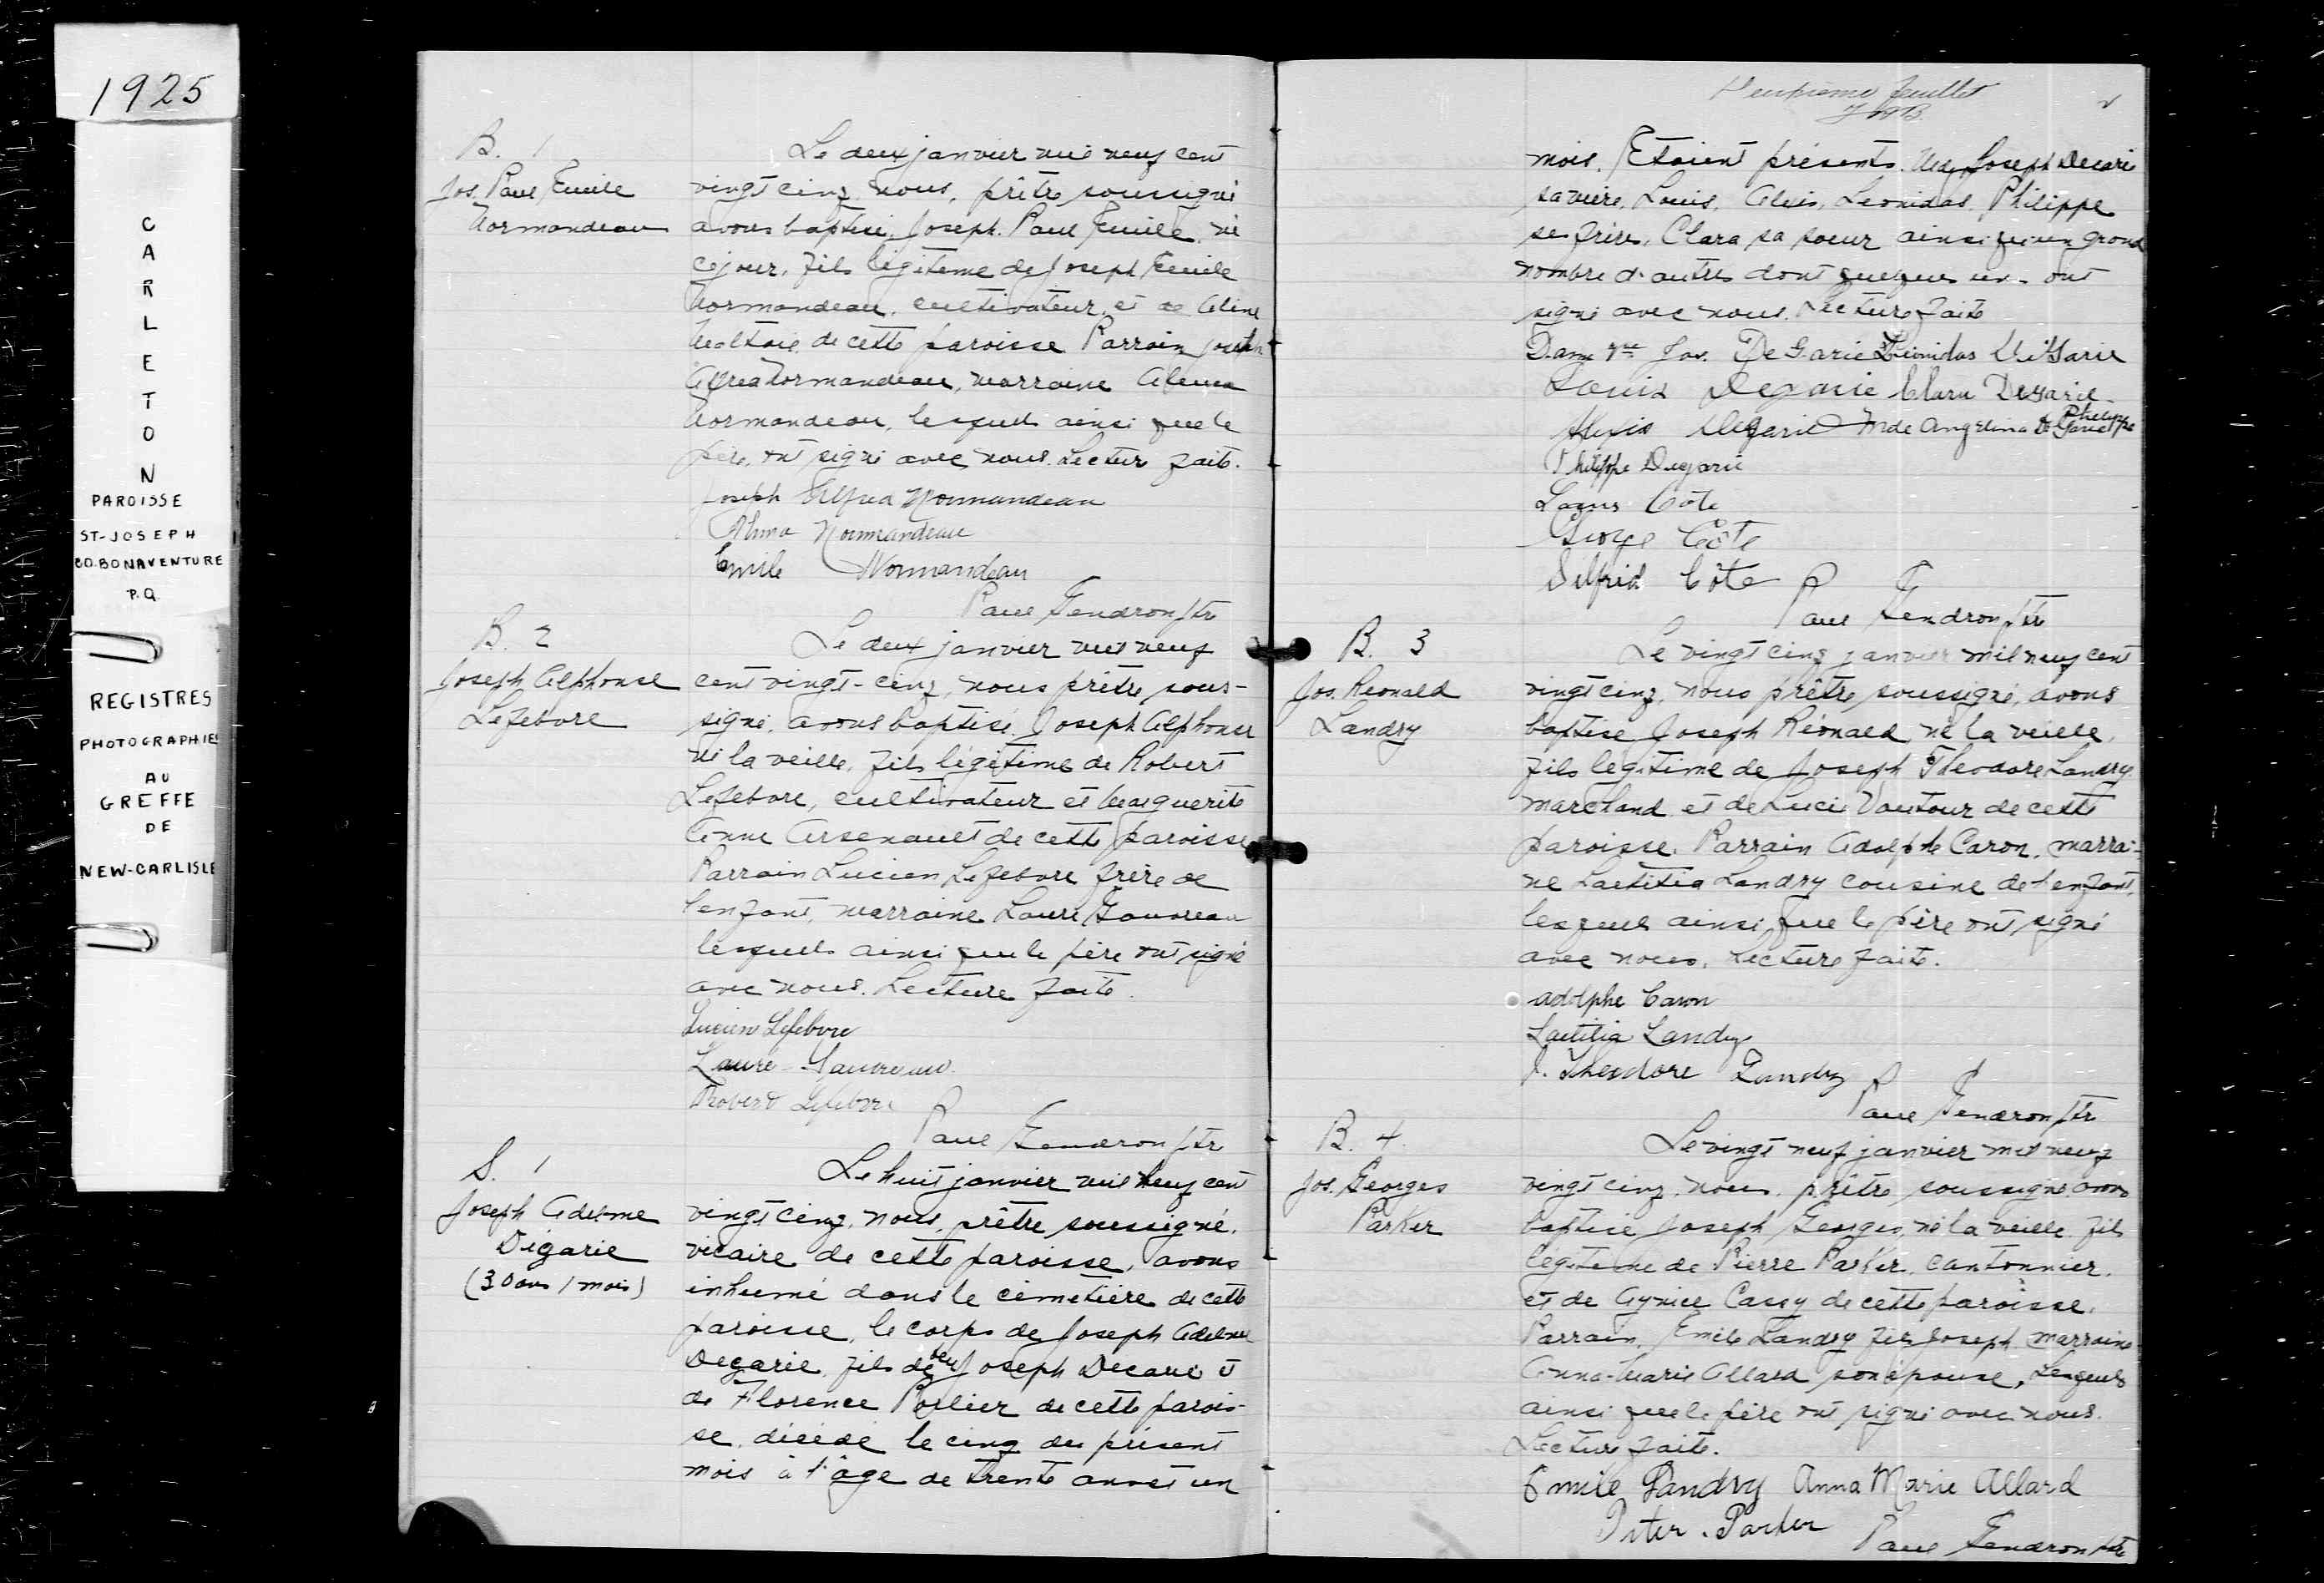 1925
CARLETON
PAROISSE
ST-JOSEPH
CO. BONAVENTURE
P.Q.
REGISTRES
PHOTOGRAPHIES
AU
GREFFE
DE
NEW-CARLISLE
B. 1
Jos. Paul Emile
Normandeau
Le deux janvier mil neuf cent
vingt cinq, nous, prêtre soussigné
avons baptisé, Joseph Paul Emile, né
ce jour, fils légitime de Joseph Emile
Normandeau, cultivateur, et de Aline
de cette paroisse. Parrain Joseph
Alfred Normandeau, marraine Alma
Normandeau, lesquels ainsi que le
père, ont signé avec nous. Lecture faite.
Joseph Alfred Normandeau
Alma Normandeau
Emile Normandeau
Paul Gendron ptr
B. 2
Joseph Alphonse
Lefebvre
Le deux janvier mil neuf
cent vingt-cinq, nous prêtre sous-
signé, avons baptisé, Joseph Alphonse
né la veille, fils légitime de Robert
Lefebvre, cultivateur et Marguerite
Anne Arsenault de cette paroisse
Parrain Lucien Lefebvre frère de
l'enfant, marraine Laure Gauvreau
lesquels ainsi que le père ont signé
avec nous. Lecture faite.
Lucien Lefebvre
Laure Gauvreau
Robert Lefebvre
Paul Gendron ptr
S. 1
Joseph Adelme
Dégarie
(30 ans 1 mois)
Le huit janvier mil neuf cent
vingt cinq, nous, prêtre soussigné,
vicaire de cette paroisse, avons
inhumé dans le cimetière de cette
paroisse, le corps de Joseph Adelme
Degarie, fils de feu Joseph Decarie et
de Florence Poirier de cette parois-
se, décédé le cinq du présent
mois à l'âge de trente ans et un
Deuxième feuillet
mois. Etaient présents. Joseph Decarie
sa mère, Louis, Alexis, Leonidas, Philippe
ses frères, Clara sa soeur ainsi qu'un grand
nombre d'autres dont quelques uns ont
signé avec nous. Lecture faite
Dame Vve Jos. DeGarie Léonidas DeGarie
Louis Degarie Clara Degarie
Alexis Degarie Mde Angelina DeGarie Philippe
Philippe Degarie
Louis Côte
George Côte
Wilfrid Côte
Paul Gendron ptr
B. 3
Jos. Réonald
Landry
Le vingt cinq janvier mil neuf cent
vingt cinq, nous prêtre soussigné, avons
baptisé Joseph Réonald, né la veille,
fils légitime de Joseph Theodore Landry
marchand et de Lucie Vautour de cette
paroisse. Parrain Adolphe Caron, marrai-
ne Laetitia Landry cousine de l'enfant,
lesquels ainsi que le père ont signé
avec nous. Lecture faite.
Adolphe Caron
Laetitia Landry
J. Theodore Landry
Paul Gendron ptr
B. 4.
Jos. Georges
Parker
Le vingt neuf janvier mil neuf
vingt cinq, nous, prêtre soussigné avons
baptisé Joseph Georges, né la veille, fils
légitime de Pierre Parker, cantonnier,
et de Cassy de cette paroisse.
Parrain, Emile Landry fils Joseph, marraine
Anna-Marie Allard son épouse, lesquels
ainsi que le père ont signé avec nous.
Lecture faite.
Emile Landry Anna Marie Allard
Peter Parker
Paul Gendron ptr